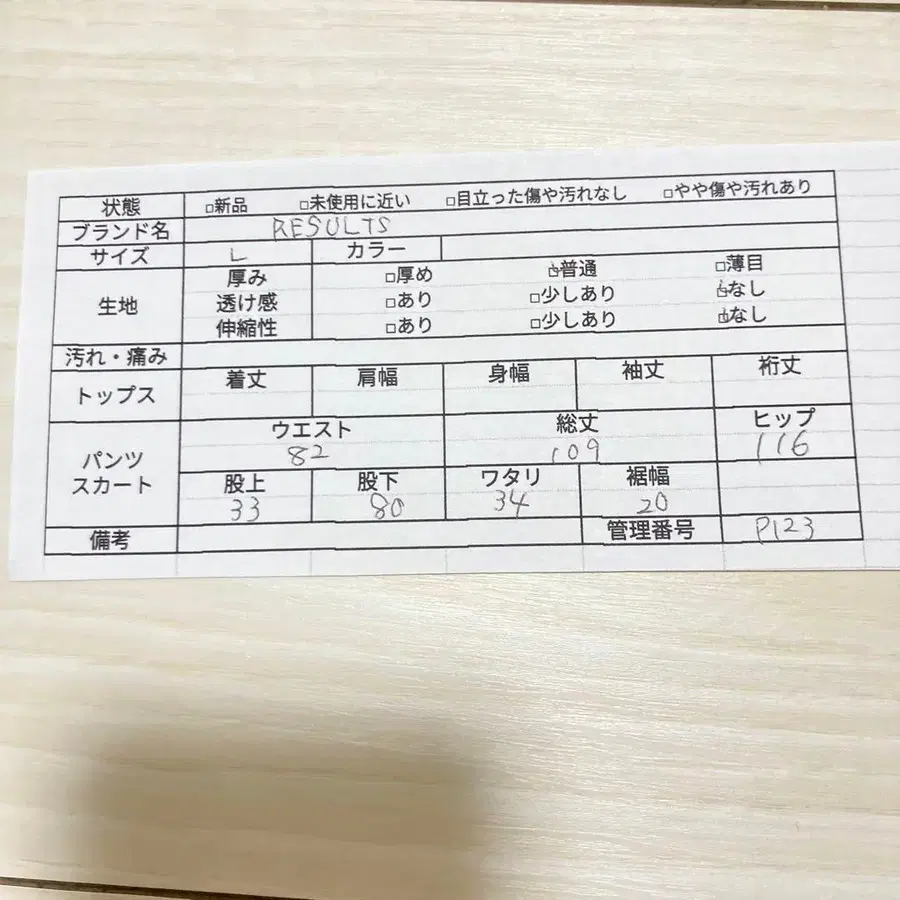 状態 □新品 □未使用に近い □目立った傷や汚れなし □やや傷や汚れあり
ブランド名 RESULTS
サイズ L カラー
生地 厚み □厚め ☑普通 □薄目
透け感 □あり □少しあり ☑なし
伸縮性 □あり □少しあり ☑なし
汚れ・痛み
トップス 着丈 肩幅 身幅 袖丈 裄丈
パンツ スカート ウエスト 総丈 ヒップ
82 109 116
股上 股下 ワタリ 裾幅
33 80 34 20
備考 管理番号 P123